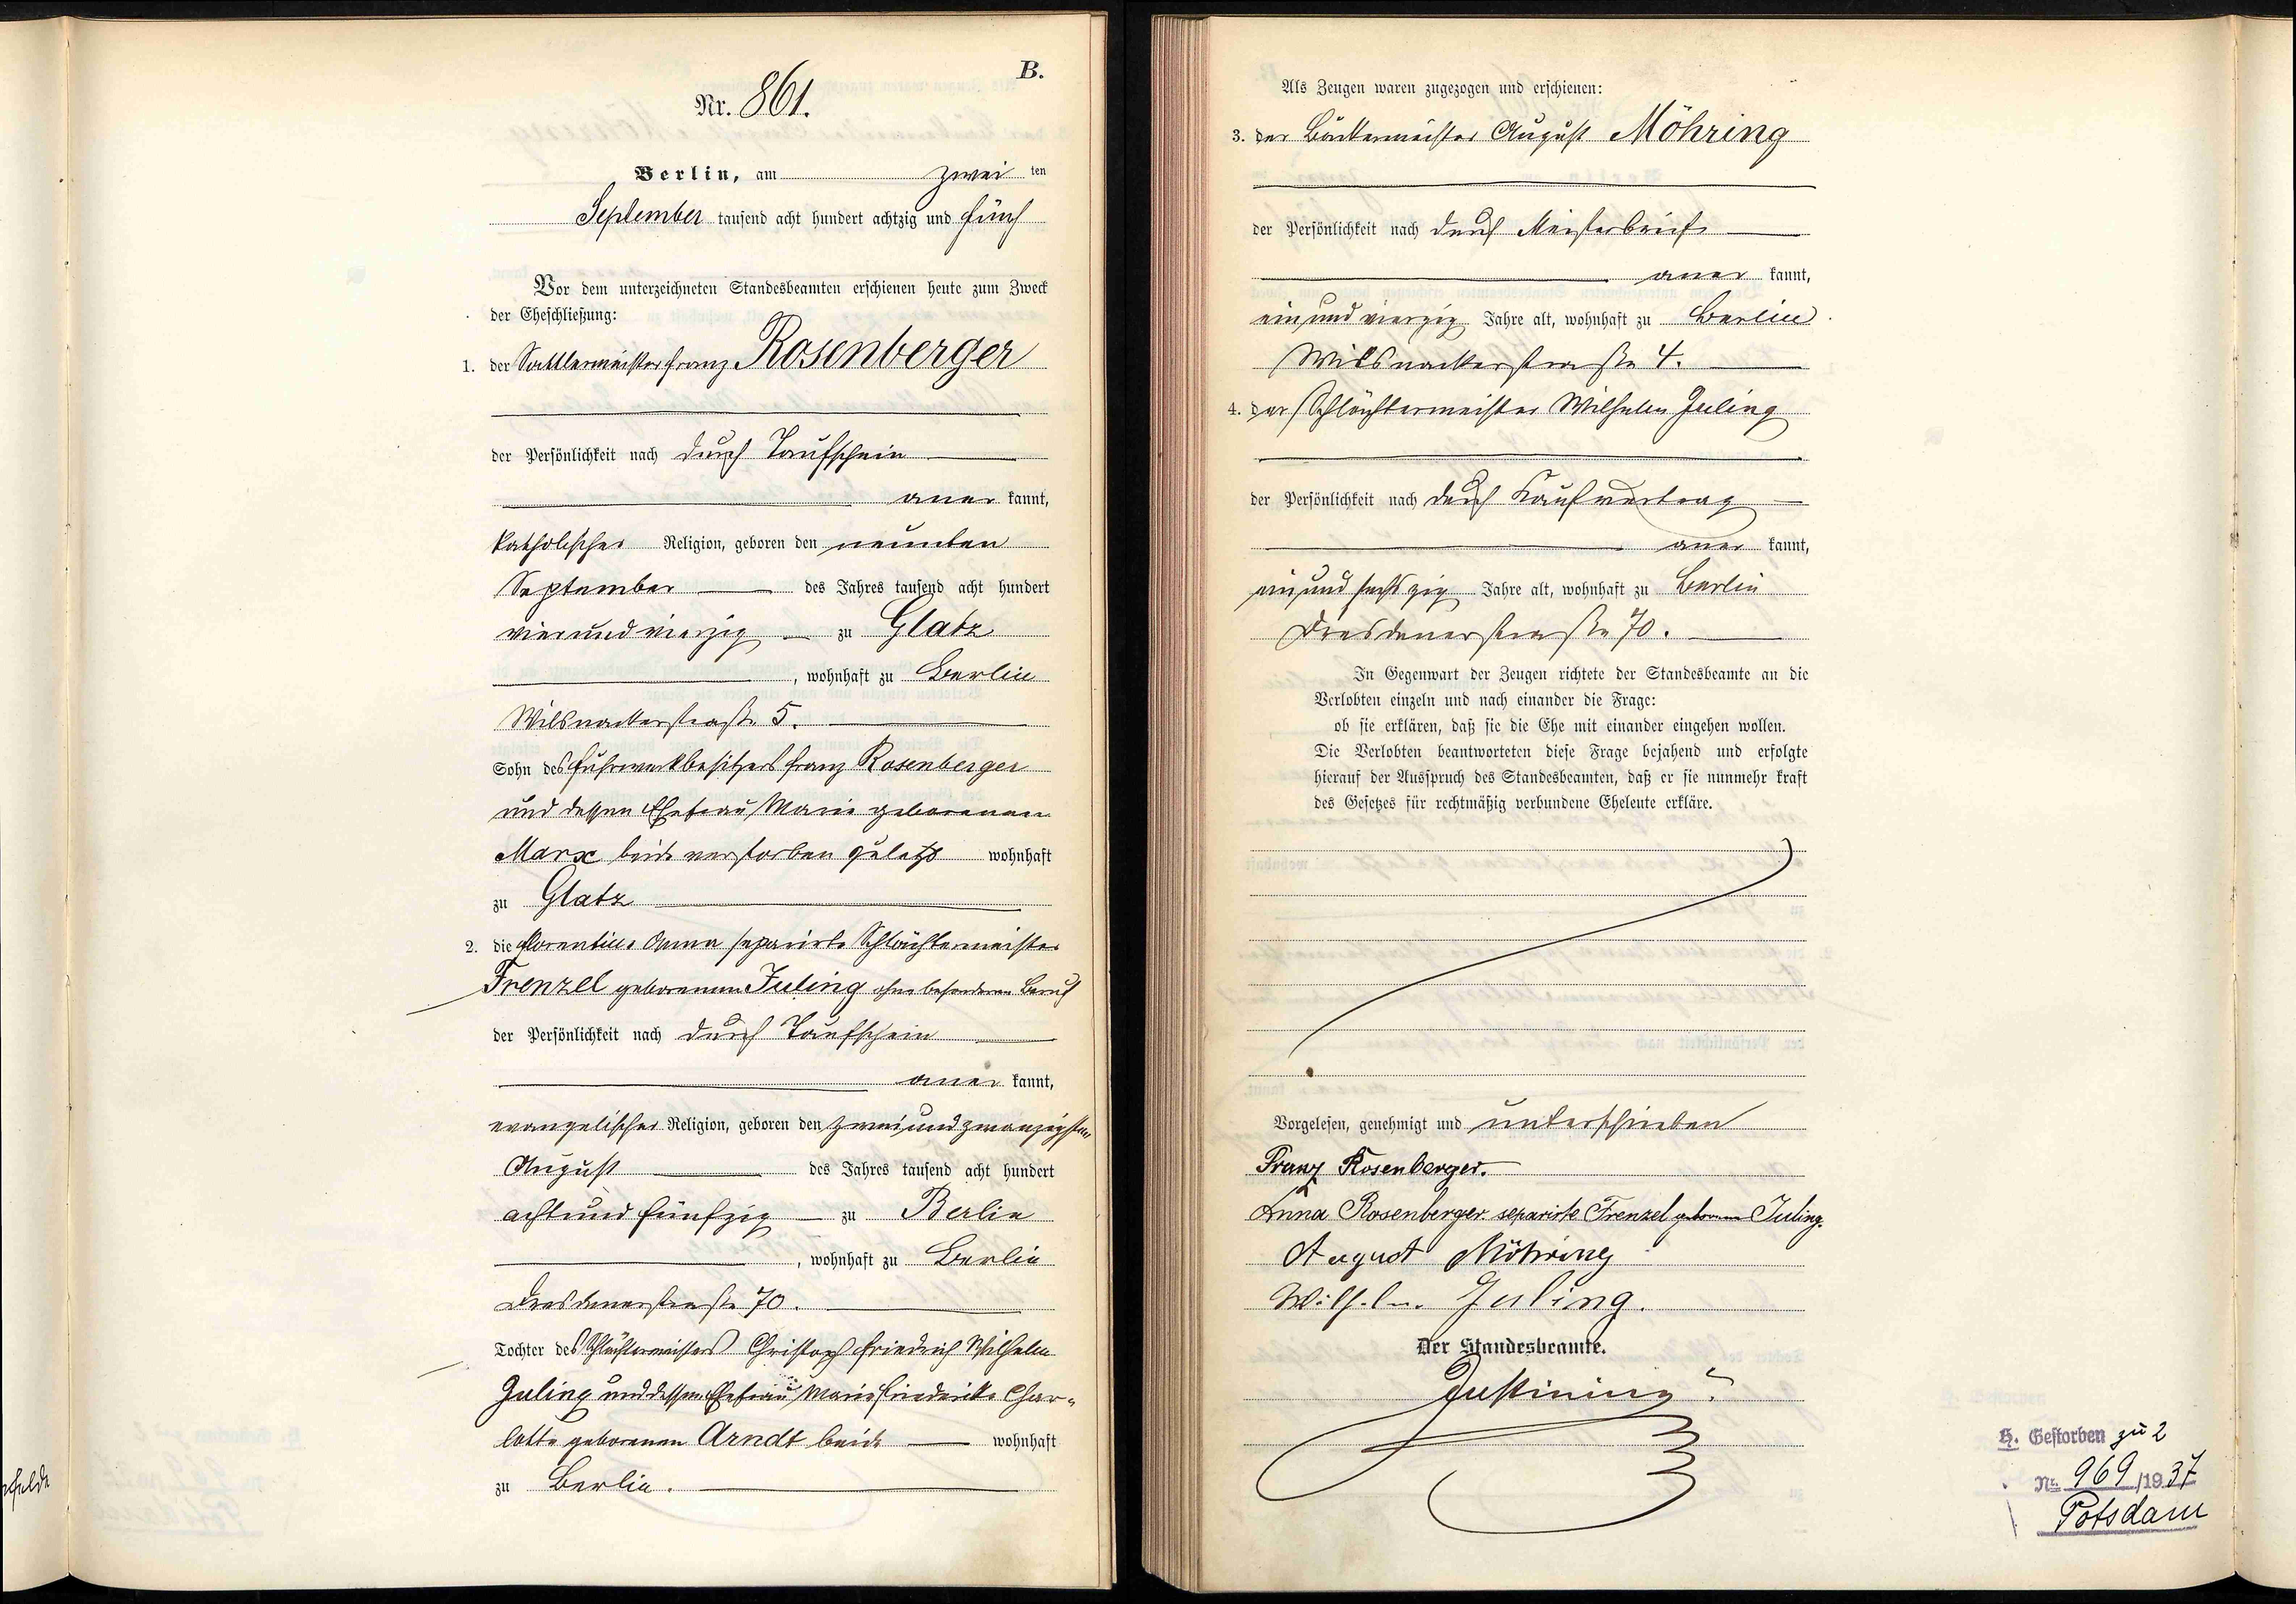 B.
Nr. 861.
Berlin, am zwei ten
September tausend acht hundert achtzig und fünf
Vor dem unterzeichneten Standesbeamten erschienen heute zum Zweck
der Eheschließung:
1. der Sattlermeister Franz Rosenberger
der Persönlichkeit nach durch Taufschein
aner kannt,
katholischer Religion, geboren den neunten
September des Jahres tausend acht hundert
vierundvierzig zu Glatz
, wohnhaft zu Berlin
Wilsnackerstraße 5.
Sohn des Fuhrwerkbesitzers Franz Rosenberger
und dessen Ehefrau Marie geborenen
Marx beide verstorben zuletzt wohnhaft
zu Glatz
2. die Florentine Anna separirte Schlächtermeister
Frenzel geborenen Juling ohne besonderen Beruf
der Persönlichkeit nach durch Taufschein
aner kannt,
evangelischer Religion, geboren den zweiundzwanzigsten
August des Jahres tausend acht hundert
achtundfünfzig zu Berlin
, wohnhaft zu Berlin
Dresdenerstraße 70.
Tochter des Schlächtermeisters Christoph Friedrich Wilhelm
Juling und dessen Ehefrau Marie Friederike Char-
lotte geborenen Arndt beide wohnhaft
zu Berlin.
Als Zeugen waren zugezogen und erschienen:
3. der Bäckermeister August Möhring
der Persönlichkeit nach durch Meisterbrief
aner kannt,
einundvierzig Jahre alt, wohnhaft zu Berlin
Wilsnackerstraße 4.
4. der Schlächtermeister Wilhelm Juling
der Persönlichkeit nach durch Kaufvertrag
aner kannt,
einundsechszig Jahre alt, wohnhaft zu Berlin
Dresdenerstraße 70.
In Gegenwart der Zeugen richtete der Standesbeamte an die
Verlobten einzeln und nach einander die Frage:
ob sie erklären, daß sie die Ehe mit einander eingehen wollen.
Die Verlobten beantworteten diese Frage bejahend und erfolgte
hierauf der Ausspruch des Standesbeamten, daß er sie nunmehr kraft
des Gesetzes für rechtmäßig verbundene Eheleute erkläre.
Vorgelesen, genehmigt und unterschrieben
Franz Rosenberger.
Anna Rosenberger separirte Frenzel geborene Juling.
August Möhring
Wilhelm Juling.
Der Standesbeamte.
H. Gestorben zu 2
Nr. 969/1937
Potsdam